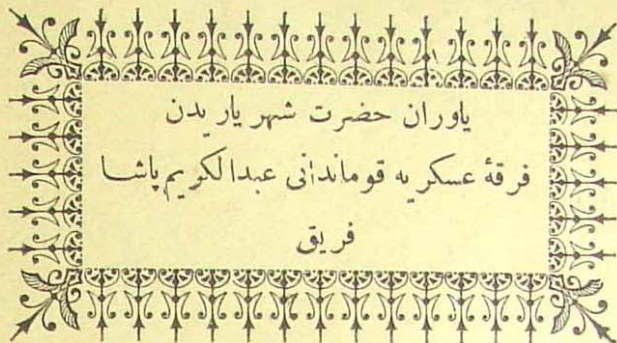 یاوران حضرت شهر یاریدن
فرقۀ عسکریه قوماندانی عبدالکریم پاشا
فریق